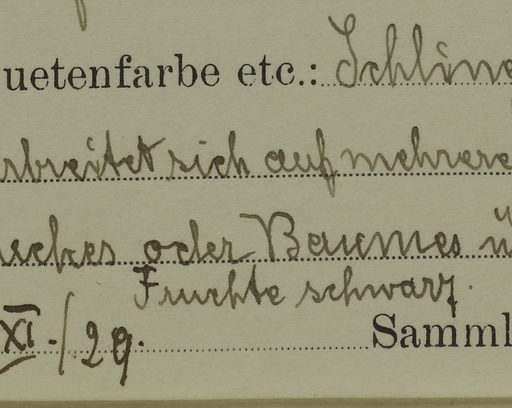 uetenfarbe etc.: Schling
rbreitet sich auf mehrere
uches oder Baumes ü
Fruchte schwarz.
XI./29. Samml